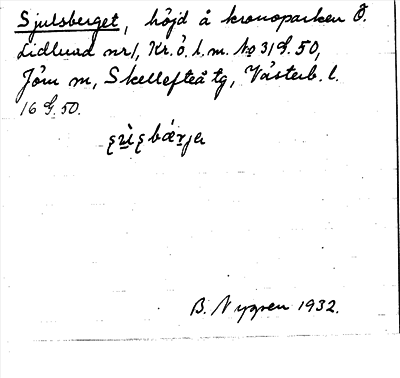 Sjulsberget, höjd å kronoparken Ö.
Lidlund nr 1, Kr. ö. l. m. No 31 G. 50,
Jörn sn, Skellefteå tg, Västerb. l.
16 G. 50.
B. Nygren 1932.